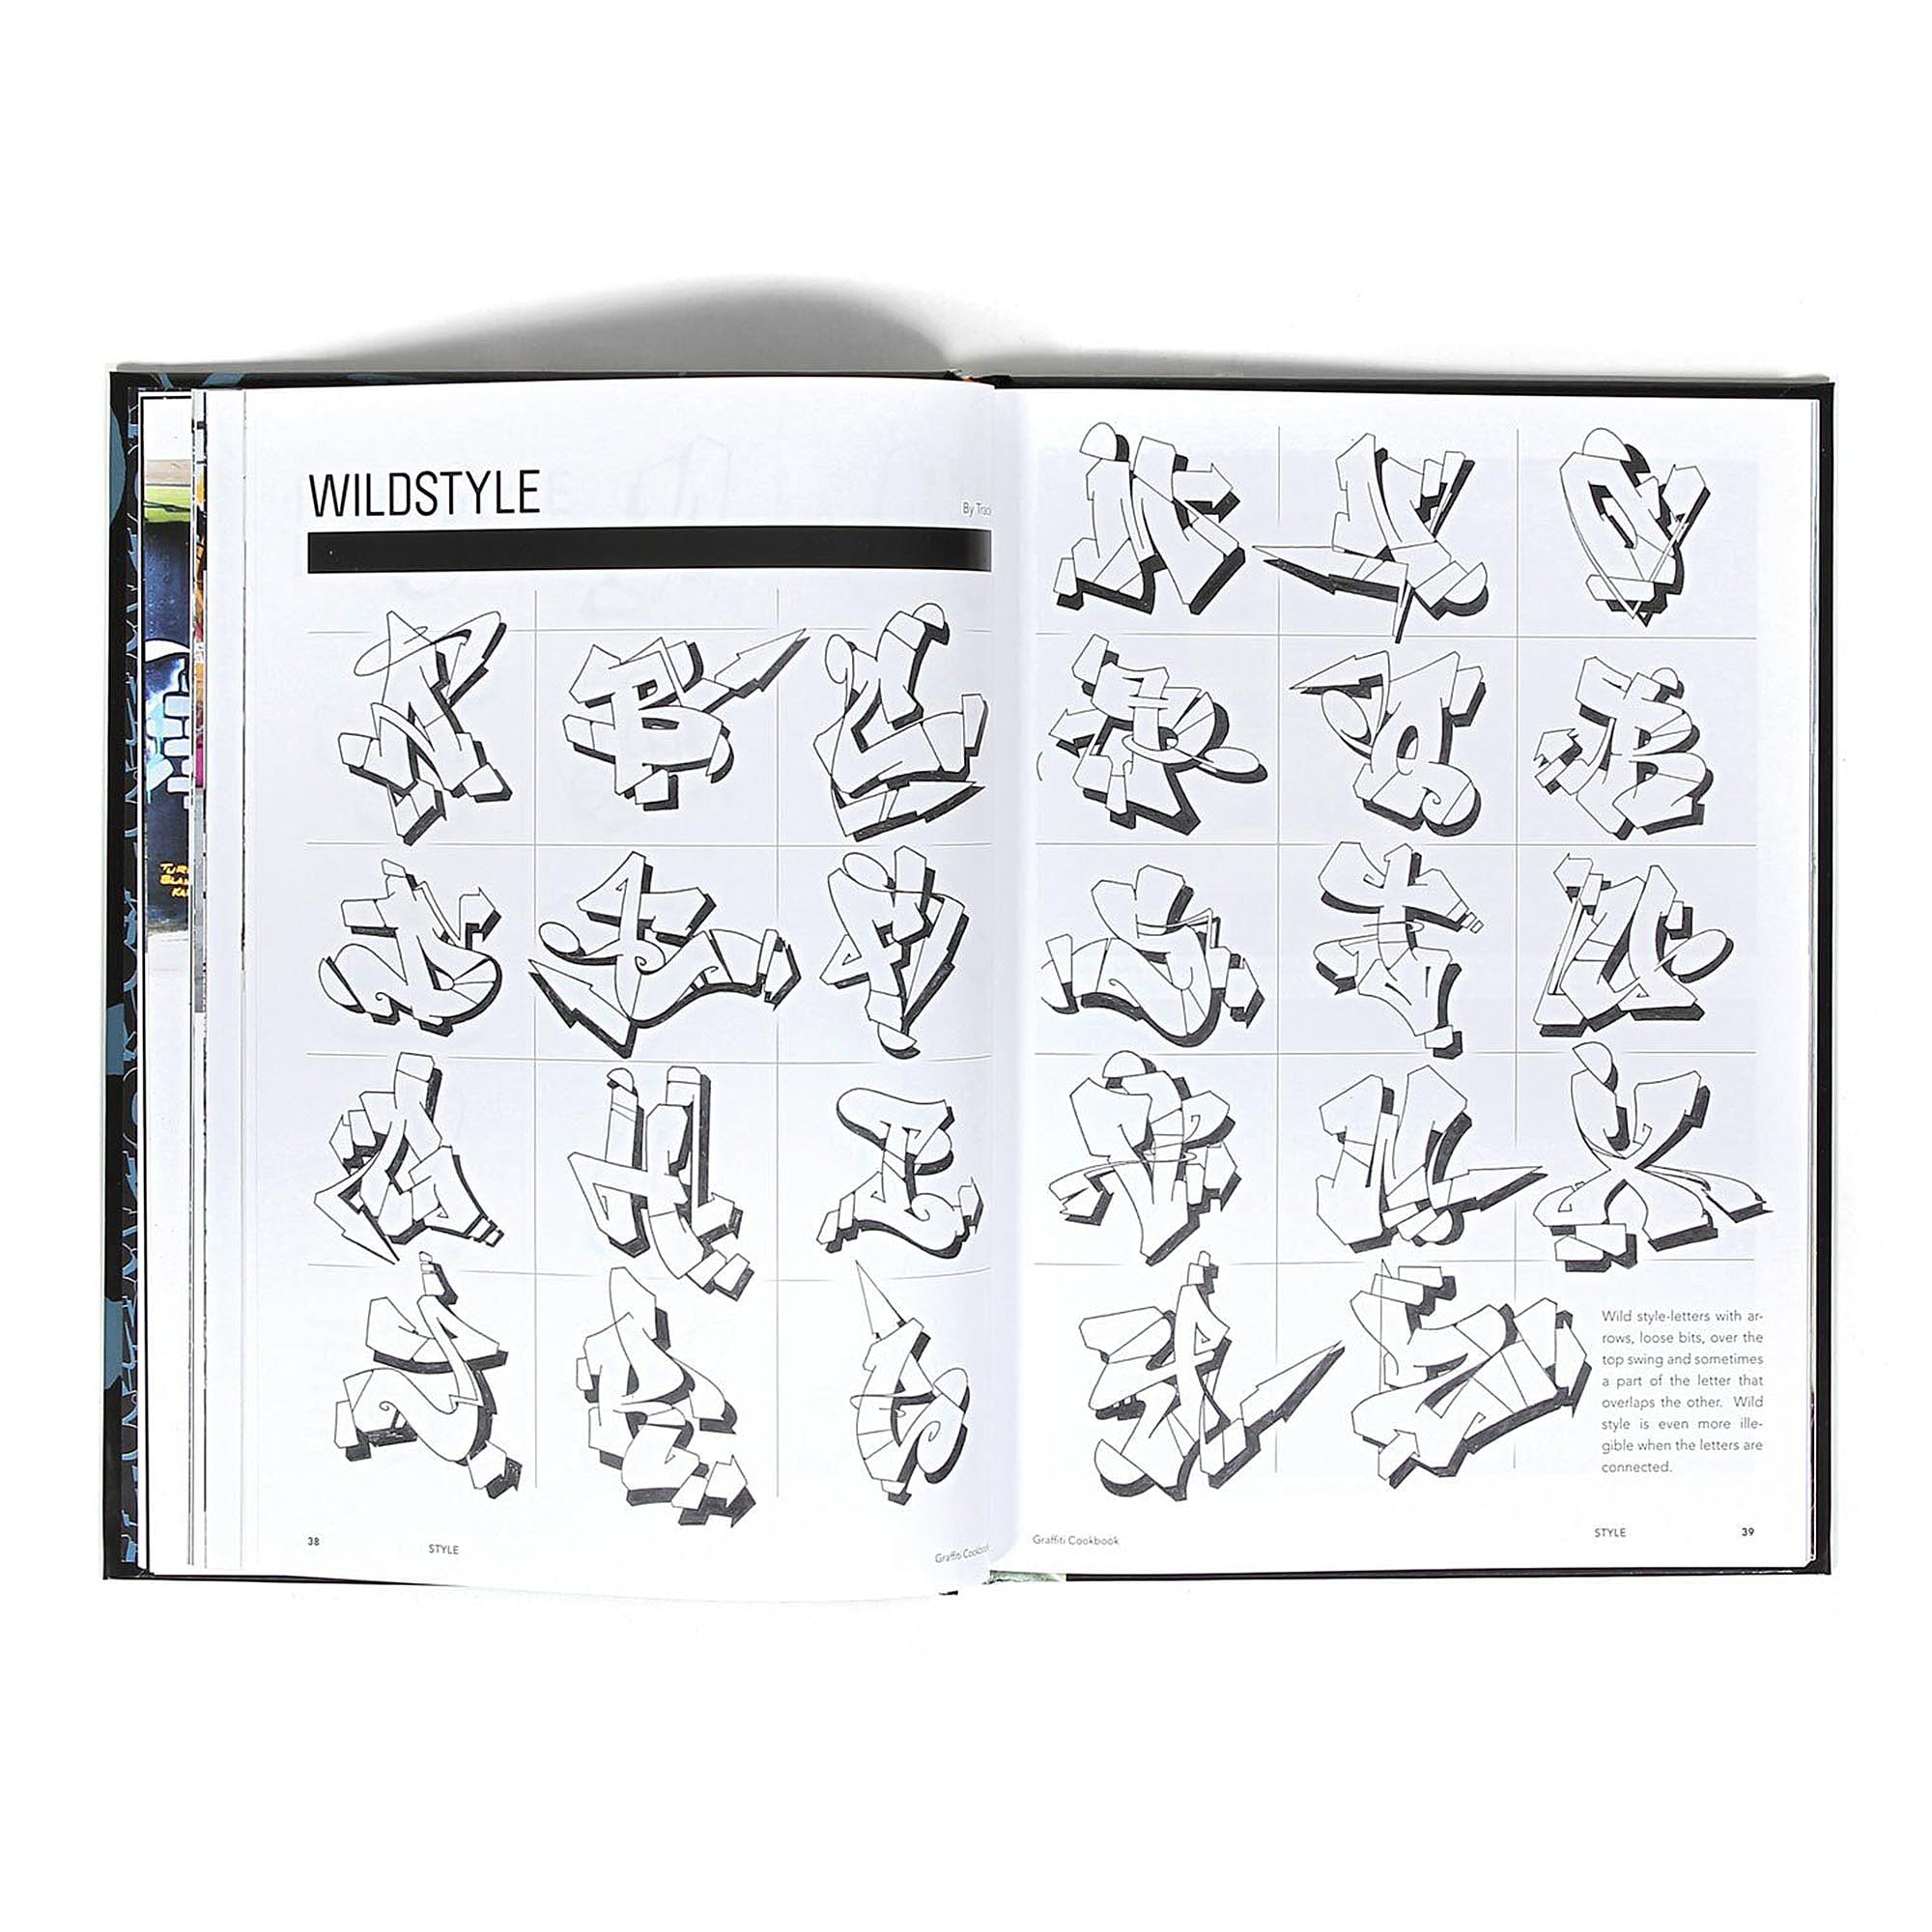 WILDSTYLE
By
A B C
D E F
G H I
J K L
38 STYLE
Graffiti
M N O
P Q R
S T U
V W X
Y Z
Wild style-letters with ar-
rows, loose bits, over the
top swing and sometimes
a part of the letter that
overlaps the other. Wild
style is even more ille-
gible when the letters are
connected.
Graffiti Cookbook
STYLE 39